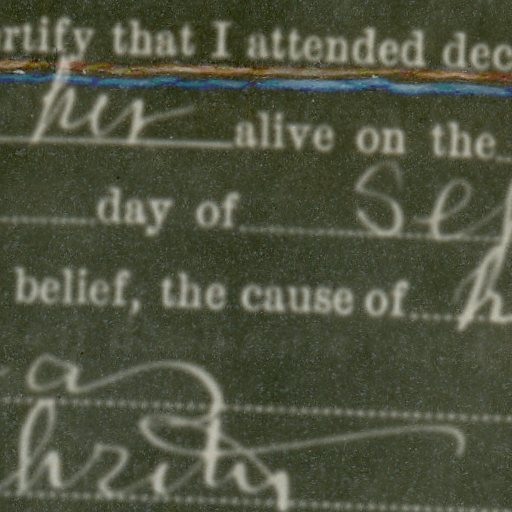 rtify that I attended dec
her alive on the
day of Sep
belief, the cause of h
a
hritis